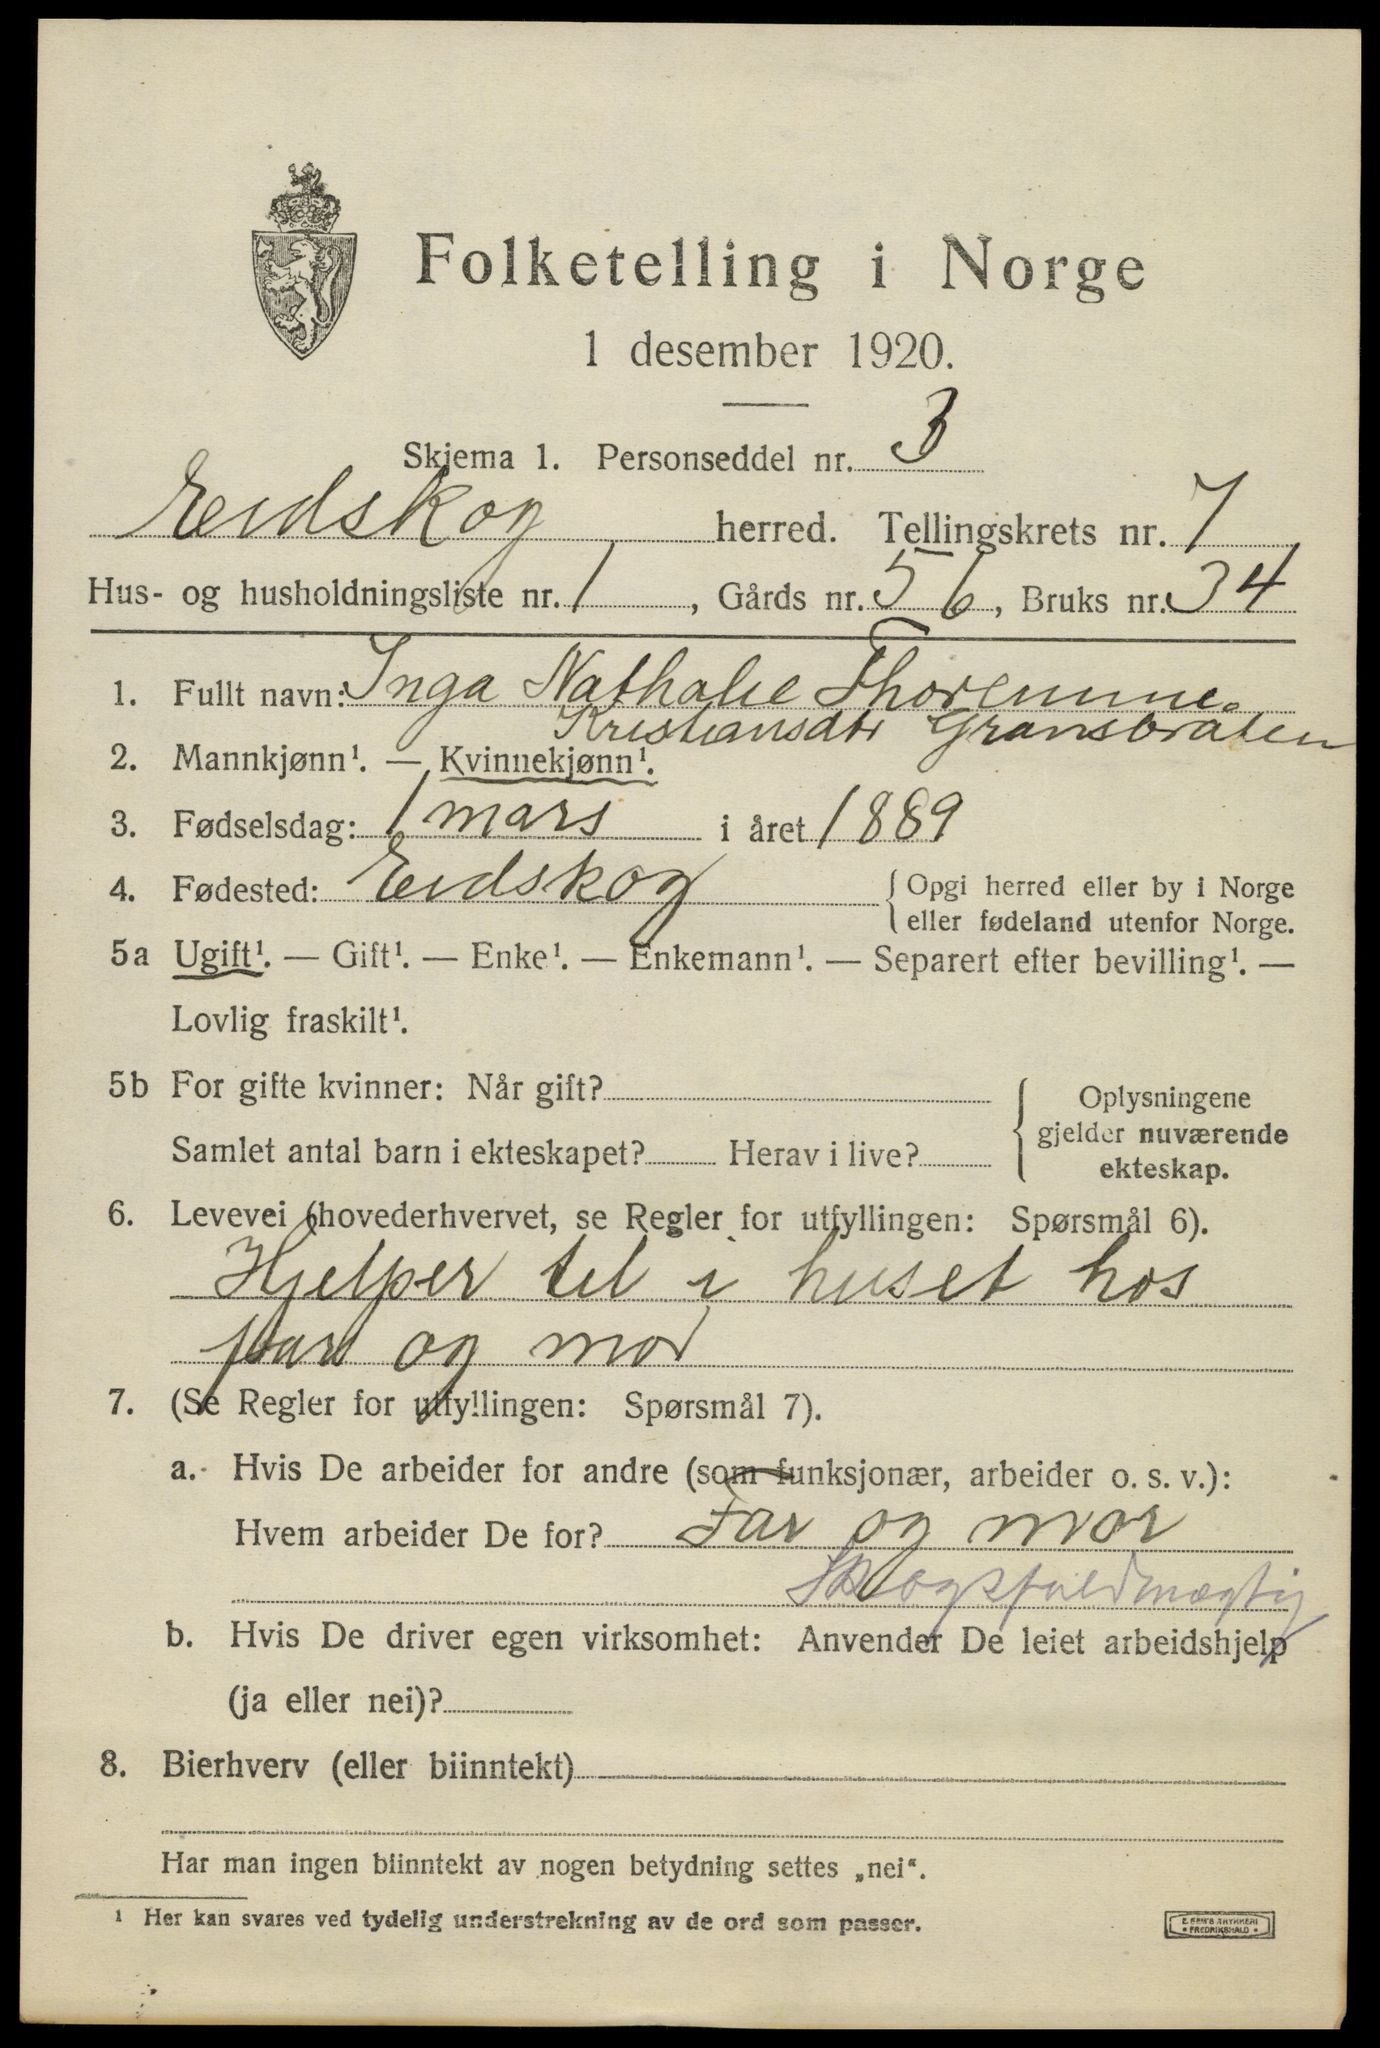 Folketelling i Norge
1 desember 1920.
Skjema 1. Personseddel nr. 3
Eidskog herred. Tellingskrets nr. 7
Hus- og husholdningsliste nr. 1, Gårds nr. 56, Bruks nr. 34
1. Fullt navn: Inga Nathalie
Kristiansdtr Gransbråten
2. Mannkjønn¹. — Kvinnekjønn¹.
3. Fødselsdag: 1 mars i året 1889
4. Fødested: Eidskog { Opgi herred eller by i Norge
eller fødeland utenfor Norge.
5a Ugift¹. — Gift¹. — Enke¹. — Enkemann¹. — Separert efter bevilling¹. —
Lovlig fraskilt¹.
5b For gifte kvinner: Når gift?
Samlet antal barn i ekteskapet? Herav i live?
{ Oplysningene
gjelder nuværende
ekteskap.
6. Levevei (hovederhvervet, se Regler for utfyllingen: Spørsmål 6).
Hjelper til i huset hos
far og mor
7. (Se Regler for utfyllingen: Spørsmål 7).
a. Hvis De arbeider for andre (som funksjonær, arbeider o. s. v.):
Hvem arbeider De for? Far og mor
Skogsfuldmægtig
b. Hvis De driver egen virksomhet: Anvender De leiet arbeidshjelp
(ja eller nei)?
8. Bierhverv (eller biinntekt)
Har man ingen biinntekt av nogen betydning settes „nei“.
¹ Her kan svares ved tydelig understrekning av de ord som passer.
E. SEM'S TRYKKERI
• FREDRIKSHALD •